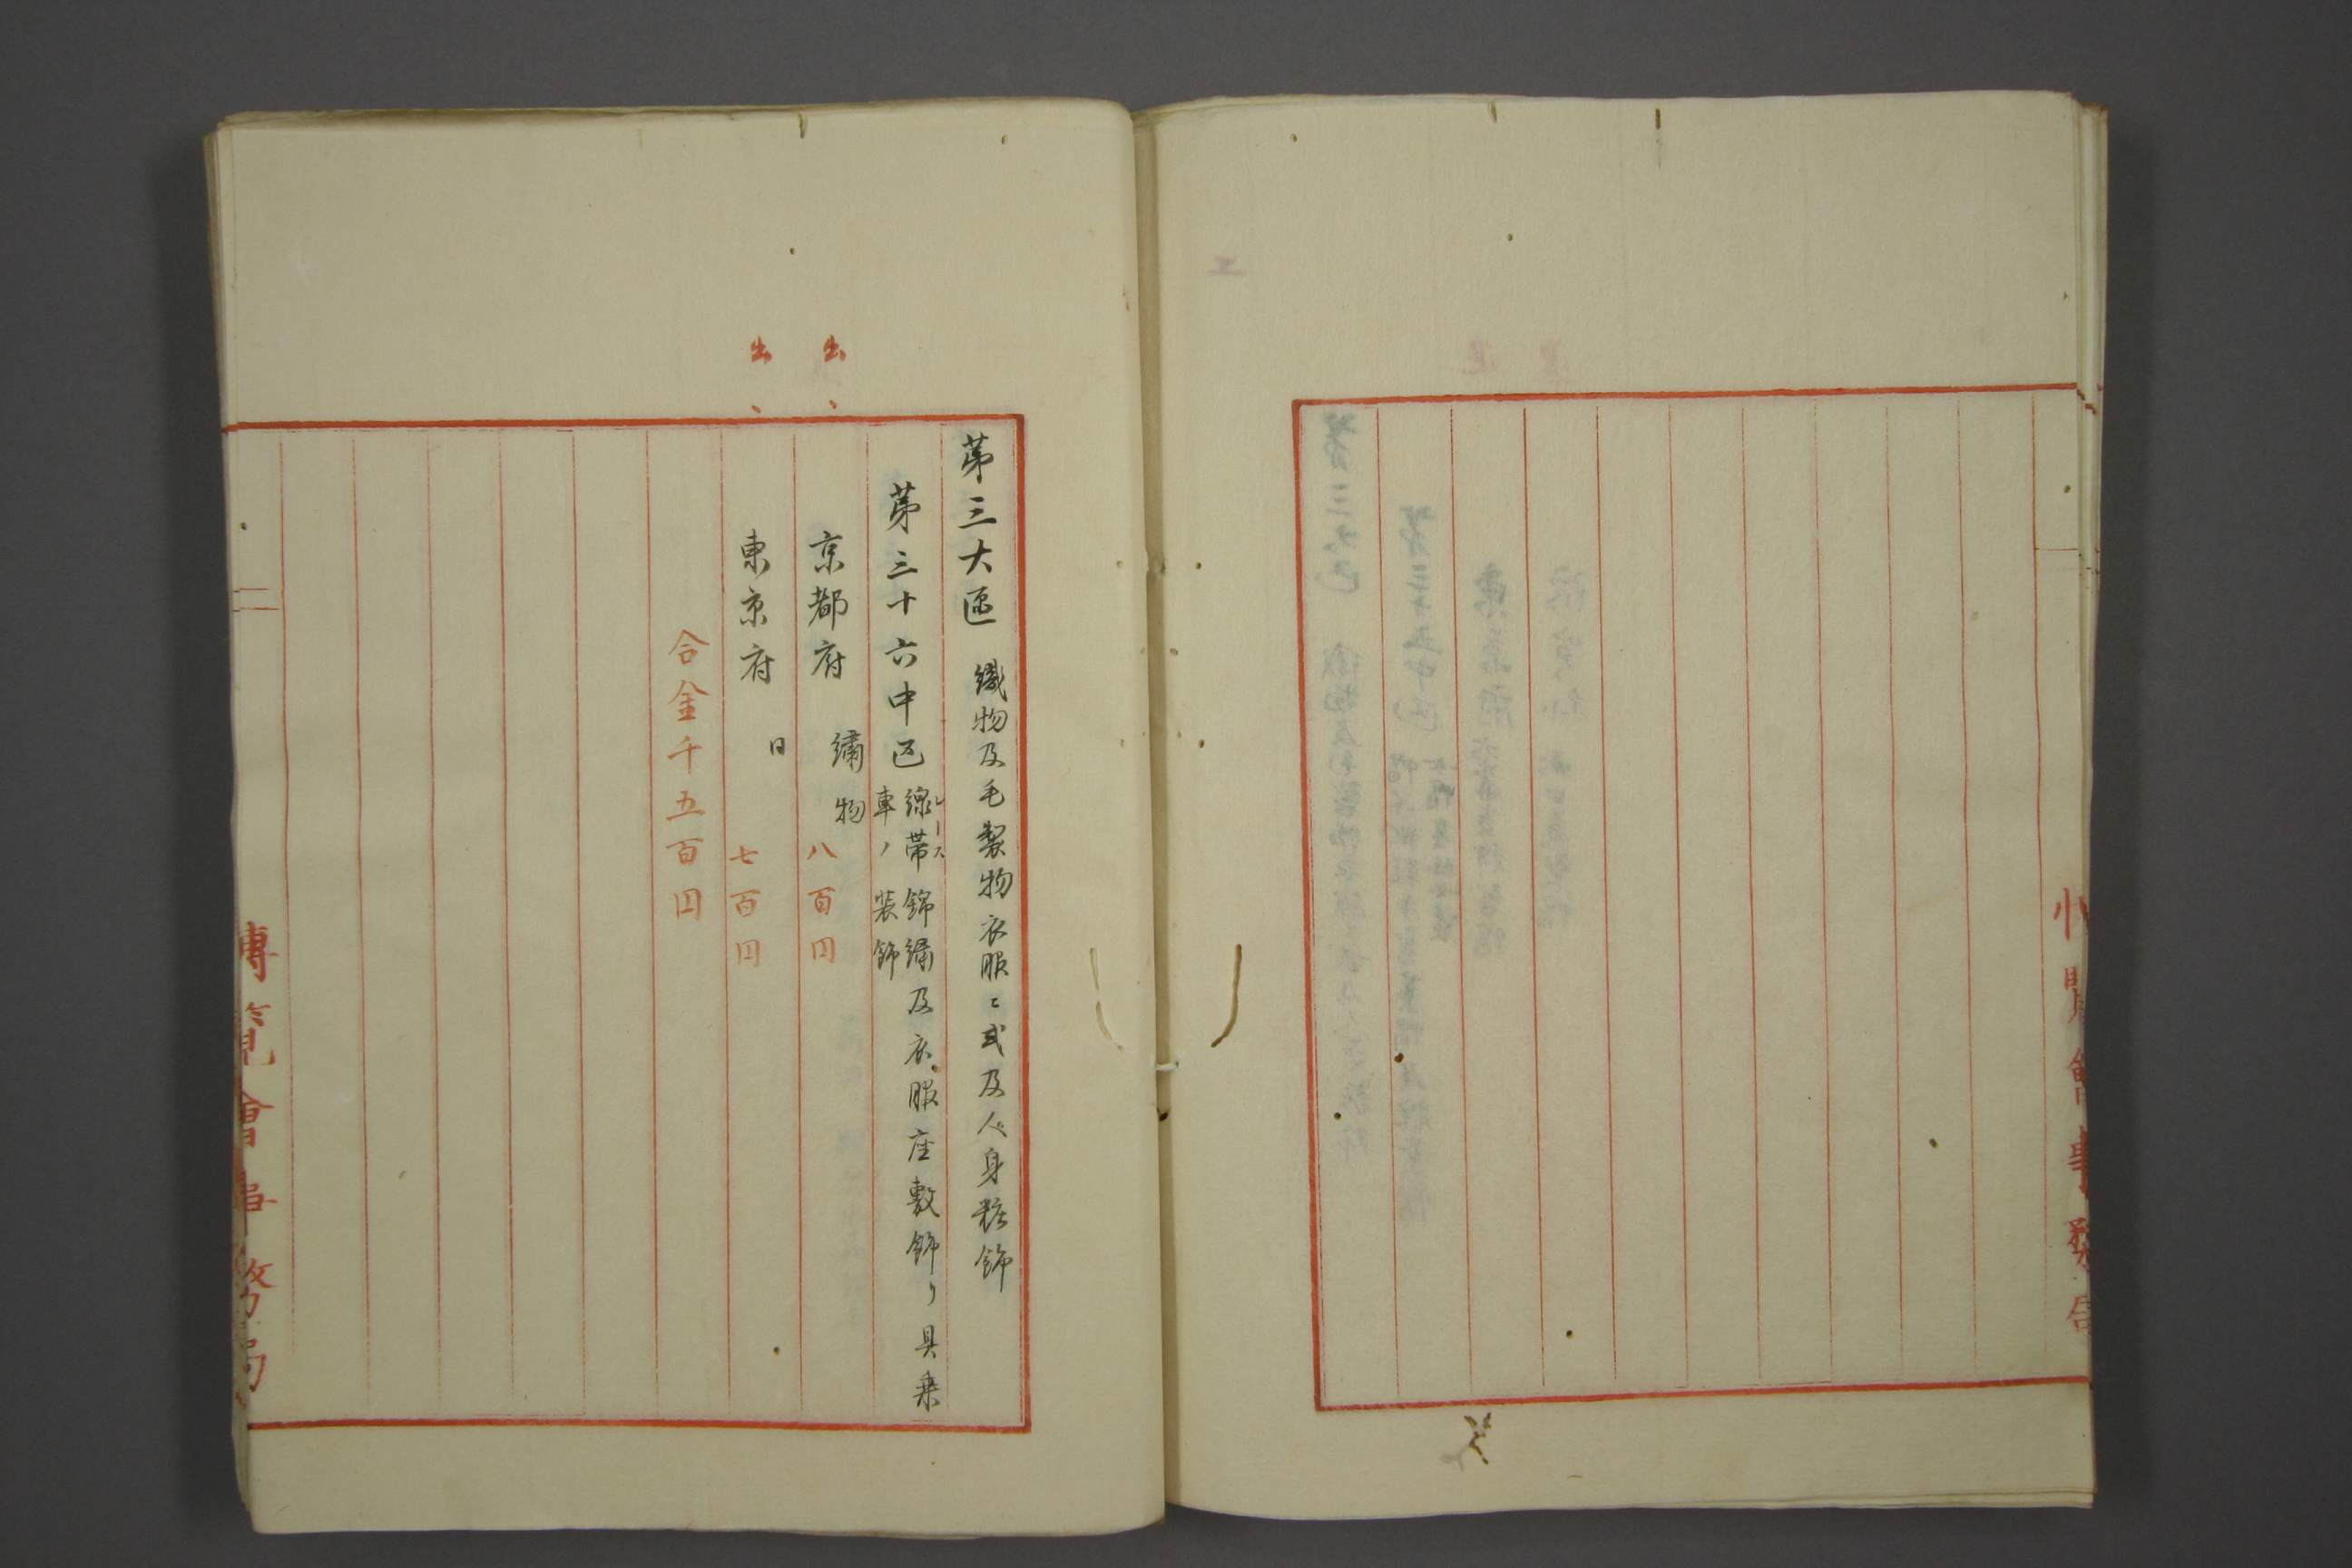 第三大區 織物及毛製物衣服ニ弐及人身粧飾
第三十六中区 線帯錦繡及衣服座敷飾リ具乗
レース
車ノ装飾
出、京都府 繡物 八百円
出、東京府 日 七百円
合金千五百円
博覧會事務局